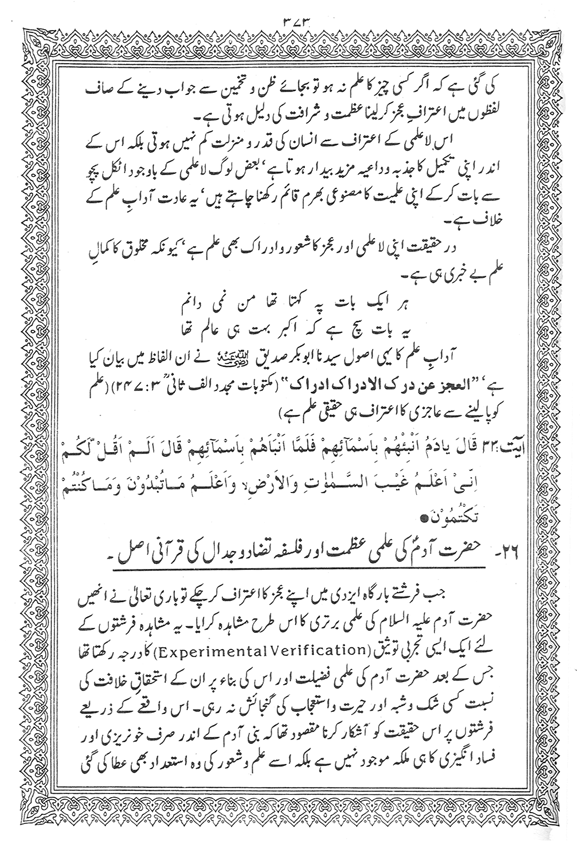 ۳۷۳
کی گئی ہے کہ اگر کسی چیز کا علم نہ ہو تو بجائے ظن و تخمین سے جواب دینے کے صاف
لفظوں میں اعترافِ عجز کر لینا عظمت و شرافت کی دلیل ہوتی ہے۔
اس لاعلمی کے اعتراف سے انسان کی قدر و منزلت کم نہیں ہوتی بلکہ اس کے
اندر اپنی تکمیل کا جذبہ و داعیہ مزید بیدار ہوتا ہے‘ بعض لوگ لاعلمی کے باوجود اٹکل پچو
سے بات کر کے اپنی علمیت کا مصنوعی بھرم قائم رکھنا چاہتے ہیں‘ یہ عادت آدابِ علم کے
خلاف ہے۔
در حقیقت اپنی لاعلمی اور عجز کا شعور و ادراک بھی علم ہے‘ کیونکہ مخلوق کا کمالِ
علم بے خبری ہی ہے۔
ہر ایک بات پہ کہتا تھا من نمی دانم
یہ بات سچ ہے کہ اکبر بہت ہی عالم تھا
آدابِ علم کا یہی اصول سیدنا ابوبکر صدیق رضی اللہ عنہ نے ان الفاظ میں بیان کیا
ہے‘ ”العجز عن درک الادراک ادراک“ (مکتوبات مجدد الف ثانیؒ ۳:۲۴۷) (علم
کو پا لینے سے عاجزی کا اعتراف ہی حقیقی علم ہے)
آیت:۳۳ قَالَ یٰادَمُ اَنْبِئْهُمْ بِاَسْمَآئِهِمْ فَلَمَّا اَنْبَاَهُمْ بِاَسْمَآئِهِمْ قَالَ اَلَمْ اَقُلْ لَّكُمْ
اِنِّیْ اَعْلَمُ غَیْبَ السَّمٰوٰتِ وَالْاَرْضِ وَاَعْلَمُ مَا تُبْدُوْنَ وَمَا كُنْتُمْ
تَكْتُمُوْنَ●
۲۶۔ حضرت آدمؑ کی علمی عظمت اور فلسفہ تضاد و جدال کی قرآنی اصل۔
جب فرشتے بارگاہ ایزدی میں اپنے عجز کا اعتراف کر چکے تو باری تعالیٰ نے انھیں
حضرت آدم علیہ السلام کی علمی برتری کا اس طرح مشاہدہ کرایا۔ یہ مشاہدہ فرشتوں کے
لئے ایک ایسی تجربی توثیق (Experimental Verification) کا درجہ رکھتا تھا
جس کے بعد حضرت آدم کی علمی فضیلت اور اس کی بناء پر ان کے استحقاقِ خلافت کی
نسبت کسی شک و شبہ اور حیرت و استعجاب کی گنجائش نہ رہی۔ اس واقعے کے ذریعے
فرشتوں پر اس حقیقت کو آشکار کرنا مقصود تھا کہ بنی آدم کے اندر صرف خونریزی اور
فساد انگیزی کا ہی ملکہ موجود نہیں ہے بلکہ اسے علم و شعور کی وہ استعداد بھی عطا کی گئی